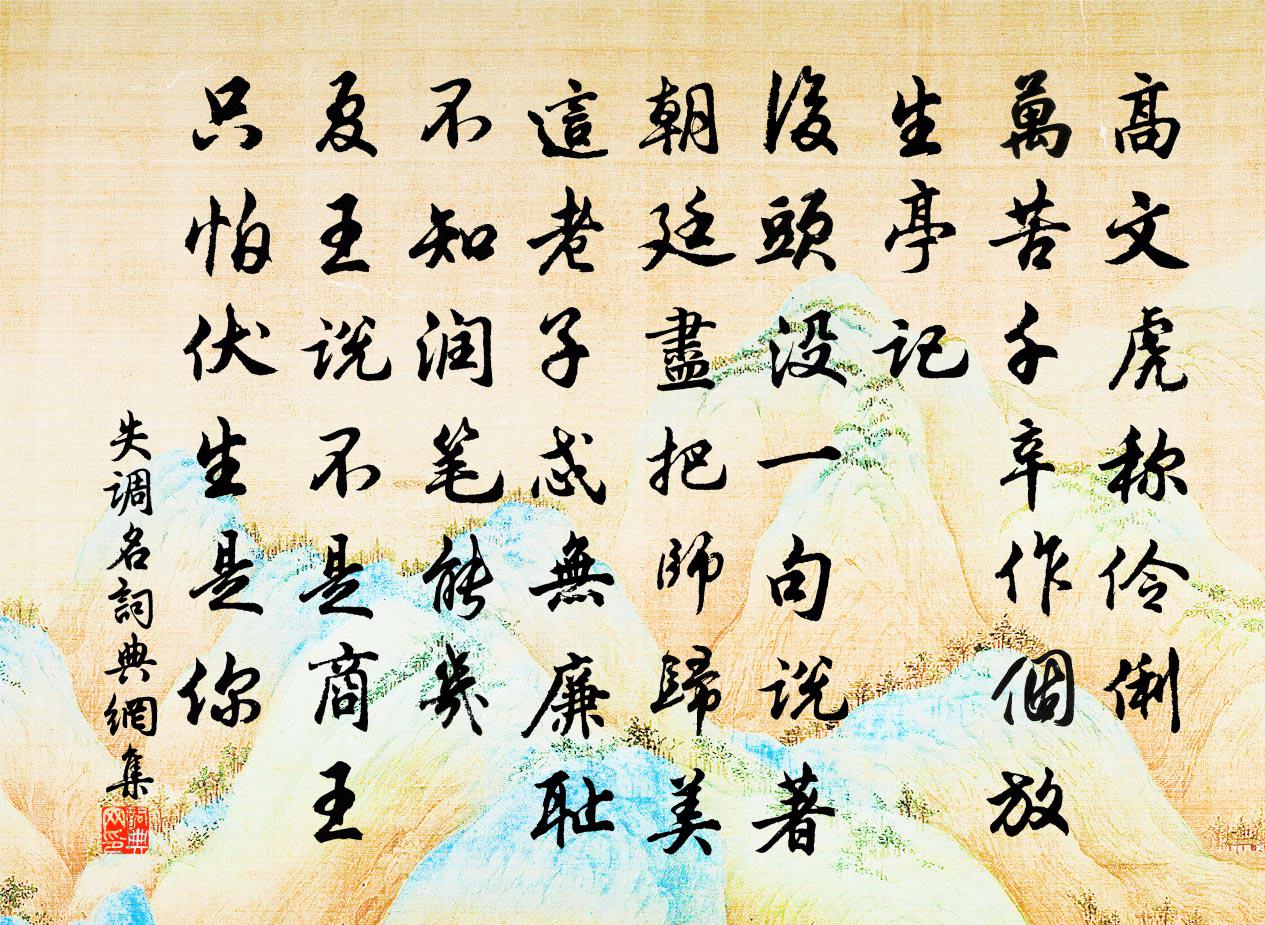 高文虎称伶俐
萬苦千辛作個放
生亭記
後頭没一句说著
朝廷盡把師歸美
這老子忒無廉耻
不知润笔能幾
夏王说不是商王
只怕伏生是你
失调名詞典網集
詞典